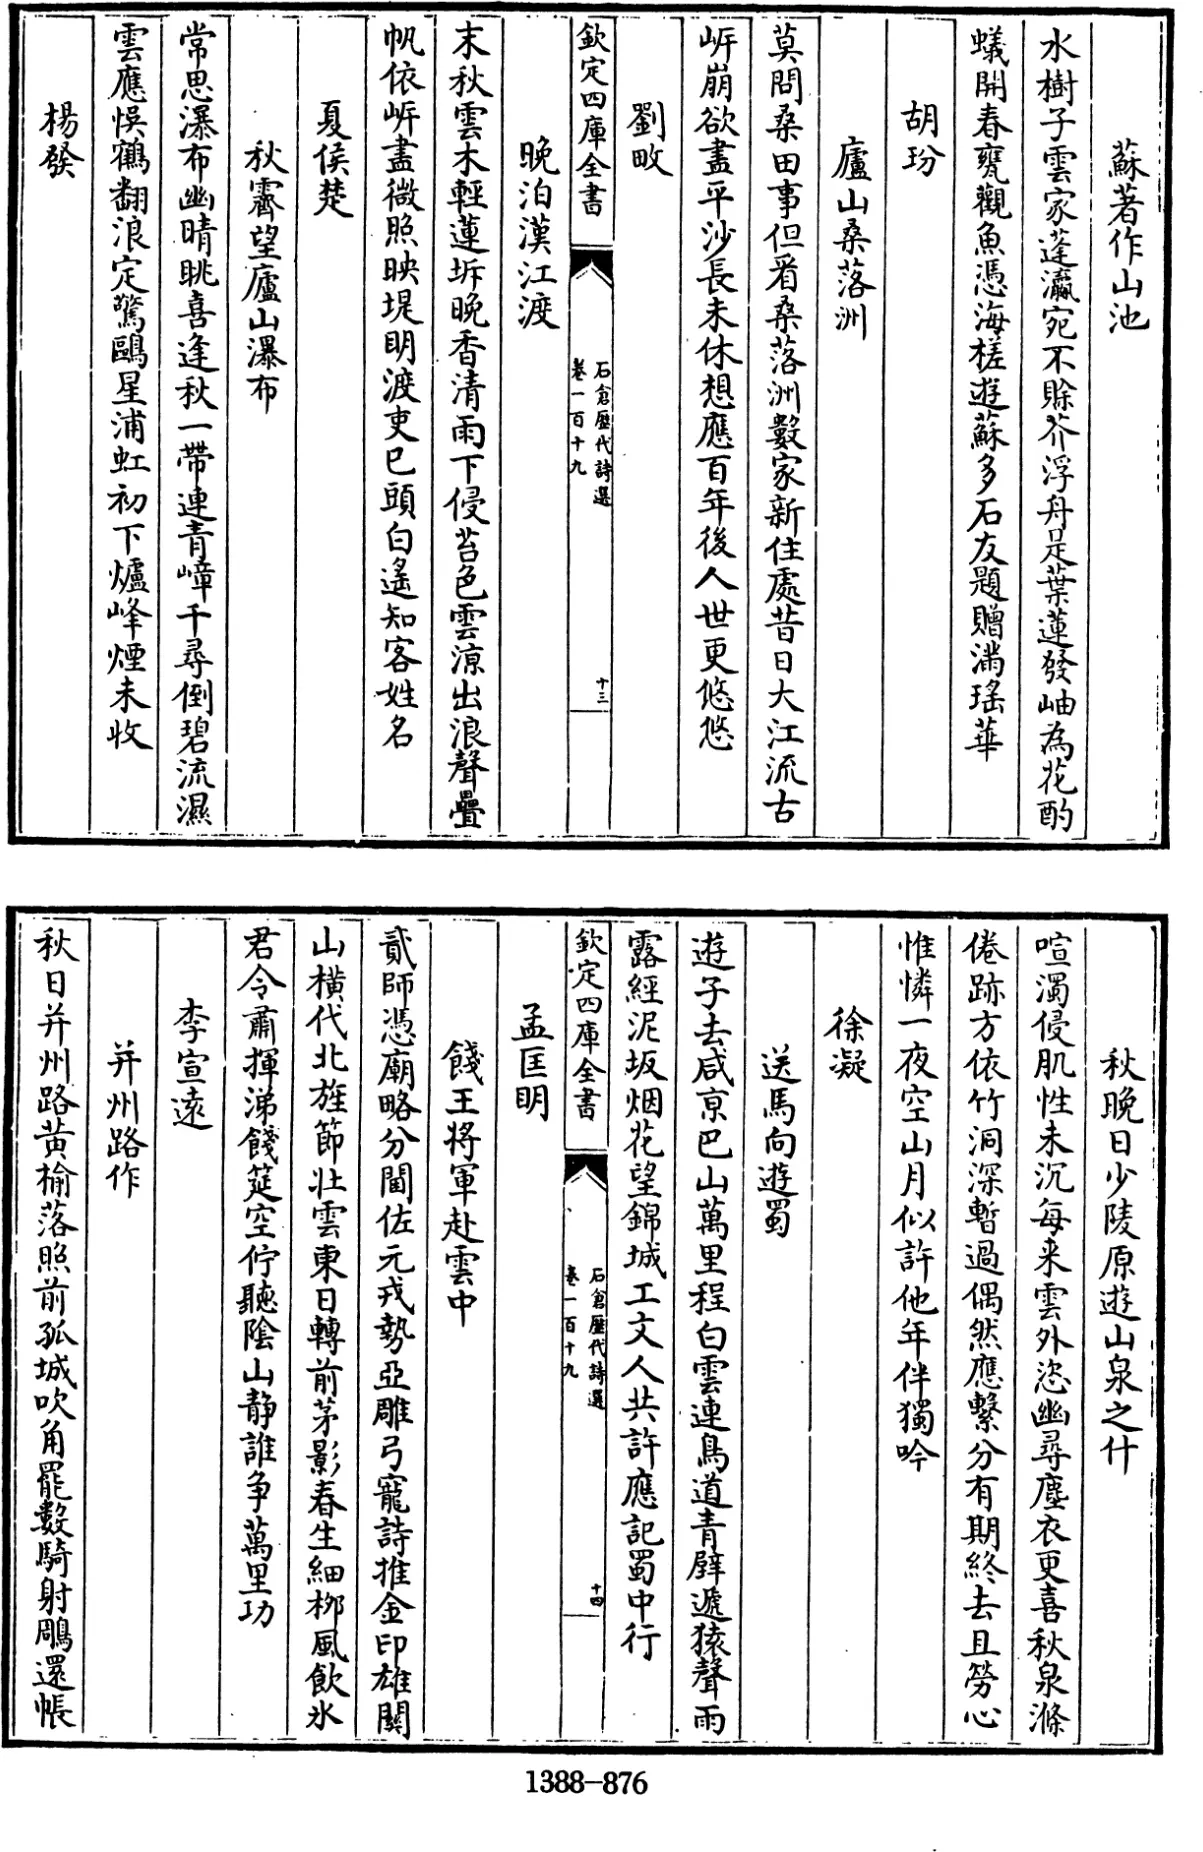 蘇著作山池
水樹子雲家蓬瀛宛不賖芥浮舟是葉蓮發岫為花酌
蟻開春甕觀魚憑海槎遊蘇多石友題贈滿瑤華
胡玢
廬山桑落洲
莫問桑田事但看桑落洲數家新住處昔日大江流古
岸崩欲盡平沙長未休想應百年後人世更悠悠
劉畋
欽定四庫全書
石倉歷代詩選
卷一百十九
十三
晚泊漢江渡
末秋雲木輕蓮坼晚香清雨下侵苔色雲涼出浪聲疊
帆依岸盡微照映堤明渡吏已頭白遙知客姓名
夏侯楚
秋霽望廬山瀑布
常思瀑布幽晴眺喜逢秋一帶連青嶂千尋倒碧流濕
雲應悞鶴翻浪定驚鷗星浦虹初下爐峰煙未收
楊發
秋晚日少陵原遊山泉之什
喧濁侵肌性未沉每来雲外恣幽尋塵衣更喜秋泉滌
倦跡方依竹洞深暫過偶然應繫分有期終去且勞心
惟憐一夜空山月似許他年伴獨吟
徐凝
送馬向遊蜀
遊子去咸京巴山萬里程白雲連鳥道青壁遞猿聲雨
露經泥坂烟花望錦城工文人共許應記蜀中行
欽定四庫全書
石倉歷代詩選
卷一百十九
十四
孟匡明
餞王將軍赴雲中
貳師憑廟略分閫佐元戎勢亞雕弓寵詩推金印雄關
山横代北旌節壯雲東日轉前茅影春生細栁風飲氷
君令肅揮涕餞筵空佇聽陰山靜誰争萬里功
李宣遠
并州路作
秋日并州路黄榆落照前孤城吹角罷數騎射鵰還帳
1388-876